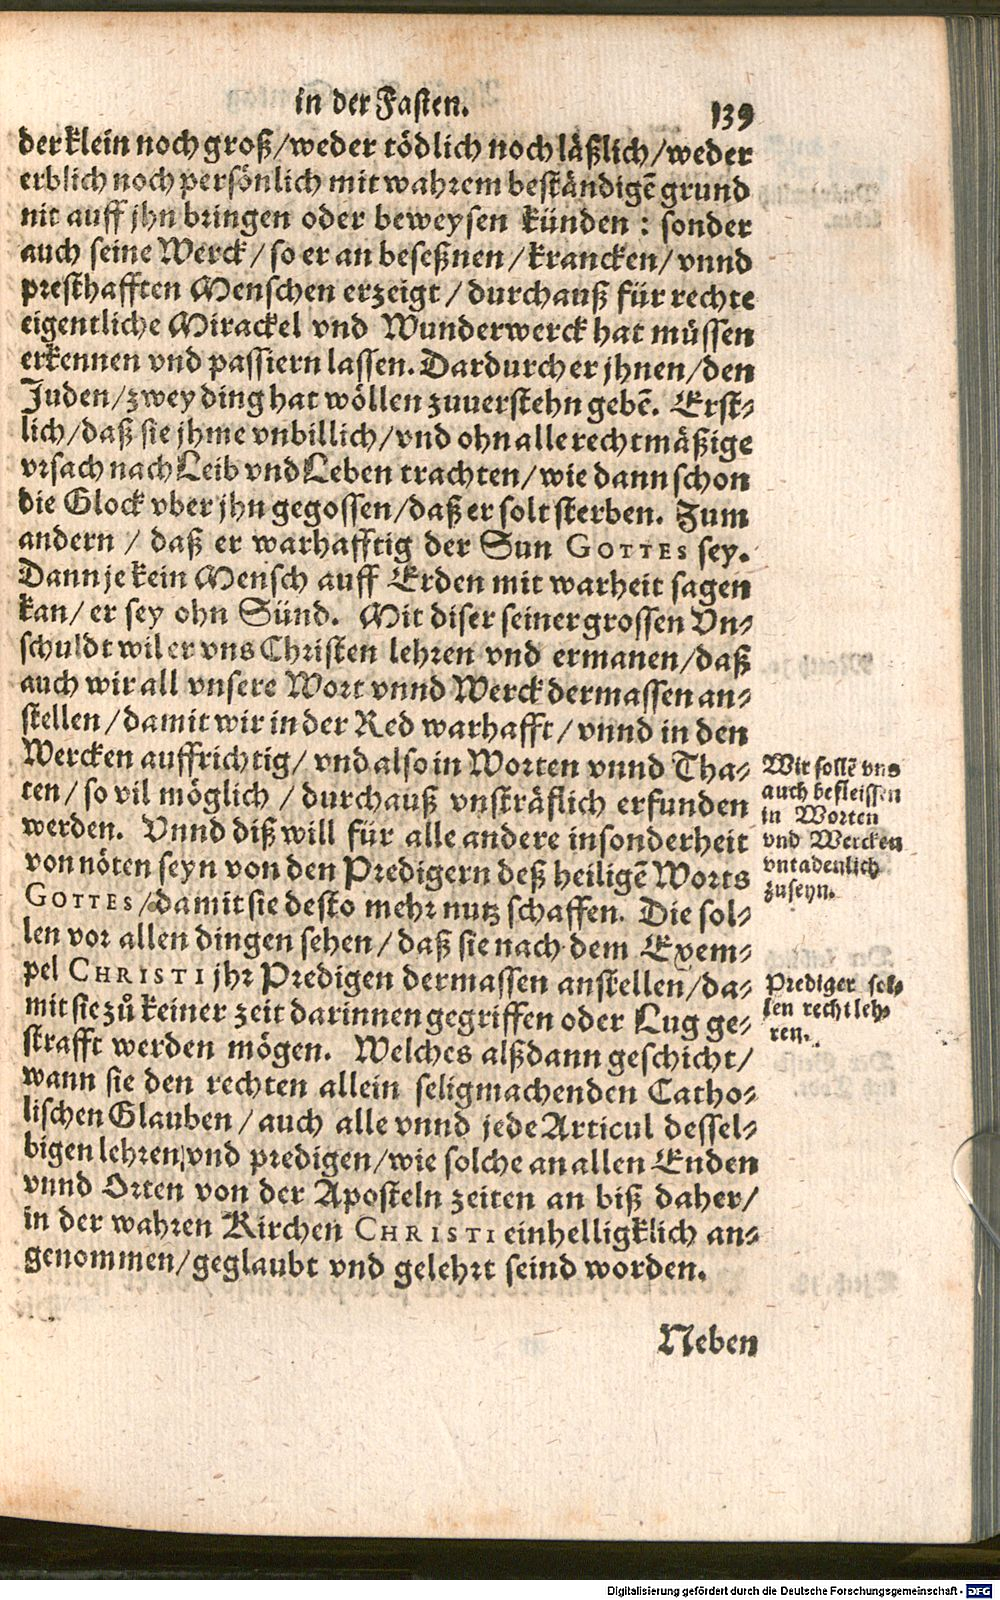 in der Fasten. 139
der klein noch groß / weder tödlich noch läßlich / weder
erblich noch persönlich mit wahrem beständigē grund
nit auff jhn bringen oder beweysen künden : sonder
auch seine Werck / so er an beseßnen / krancken / vnnd
presthafften Menschen erzeigt / durchauß für rechte
eigentliche Mirackel vnd Wunderwerck hat müssen
erkennen vnd passiern lassen. Dardurch er jhnen / den
Juden / zwey ding hat wöllen zuuerstehn gebē. Erst⸗
lich / daß sie jhme vnbillich / vnd ohn alle rechtmäßige
vrsach nach Leib vnd Leben trachten / wie dann schon
die Glock vber jhn gegossen / daß er solt sterben. Zum
andern / daß er warhafftig der Sun GOTTES sey.
Dann je kein Mensch auff Erden mit warheit sagen
kan / er sey ohn Sünd. Mit diser seiner grossen Vn⸗
schuldt wil er vns Christen lehren vnd ermanen / daß
auch wir all vnsere Wort vnnd Werck dermassen an⸗
stellen / damit wir in der Red warhafft / vnnd in den
Wercken auffrichtig / vnd also in Worten vnnd Tha⸗
ten / so vil möglich / durchauß vnsträflich erfunden
werden. Vnnd diß will für alle andere insonderheit
von nöten seyn von den Predigern deß heiligē Worts
GOTTES / damit sie desto mehr nutz schaffen. Die sol⸗
len vor allen dingen sehen / daß sie nach dem Exem⸗
pel CHRISTI jhr Predigen dermassen anstellen / da⸗
mit sie zů keiner zeit darinnen gegriffen oder Lug ge⸗
strafft werden mögen. Welches alßdann geschicht /
wann sie den rechten allein seligmachenden Catho⸗
lischen Glauben / auch alle vnnd jede Articul dessel⸗
bigen lehren / vnd predigen / wie solche an allen Enden
vnnd Orten von der Aposteln zeiten an biß daher /
in der wahren Kirchen CHRISTI einhelligklich an⸗
genommen / geglaubt vnd gelehrt seind worden.
Neben
Wir sollē vns
auch befleissen
in Worten
vnd Wercken
vntadenlich
zuseyn.
Prediger sol⸗
len recht leh⸗
ren.
Digitalisierung gefördert durch die Deutsche Forschungsgemeinschaft - DFG